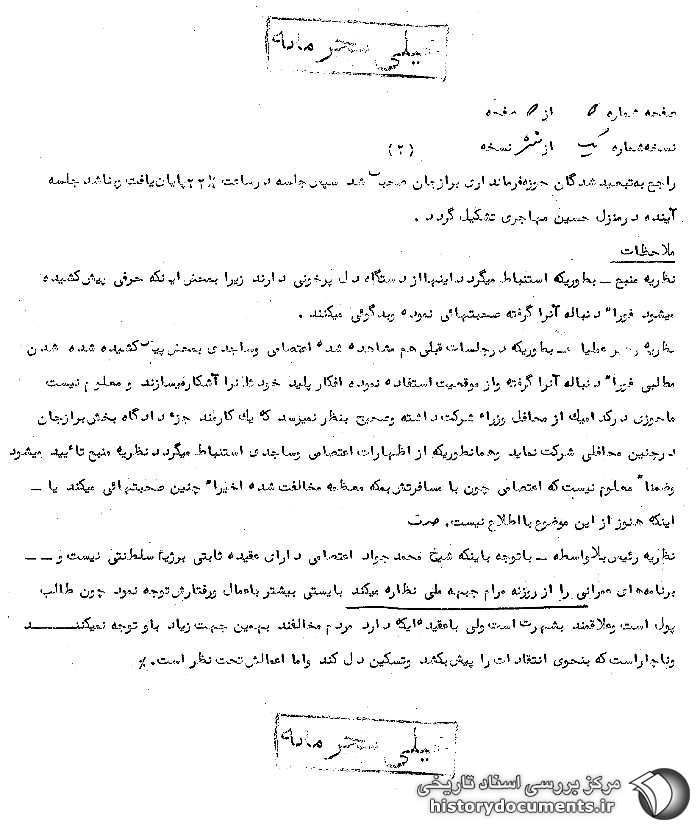 خیلی محرمانه
صفحه شماره ۵ از ۵ صفحه
نسخه شماره یک از شش نسخه (۲)
راجع به تبعید شدگان حوزه فرمانداری برازجان صحبت شد سپس جلسه در ساعت ۲۲ پایان یافت و بنا شد جلسه
آینده در منزل حسین مهاجری تشکیل گردد .
ملاحظات
نظریه منبع ــ بطوریکه استنباط میگردد اینها از دستگاه دل پرخونی دارند زیرا بمحض اینکه حرفی پیش کشیده
میشود فورا" دنباله آنرا گرفته صحبتهائی نموده و بدگوئی میکنند .
نظریه رهبر عملیات ــ بطوریکه در جلسات قبلی هم مشاهده شده اعتصامی و ساجدی بمحض پیش کشیده شدن
مطالبی فورا" دنباله آنرا گرفته و از موقعیت استفاده نموده افکار پلید خودشانرا آشکار میسازند و معلوم نیست
ماحوزی در کدامیک از محافل وزراء شرکت داشته و صحیح بنظر نمیرسد که یک کارمند جزء دادگاه بخش برازجان
در چنین محافلی شرکت نماید و همانطوریکه از اظهارات اعتصامی و ساجدی استنباط میگردد نظریه منبع تائید میشود
و ضمنا" معلوم نیست که اعتصامی چون با مسافرتش بمکه معظمه مخالفت شده اخیرا" چنین صحبتهائی میکند یا ــ
اینکه هنوز از این موضوع با اطلاع نیست.
نظریه رئیس بلاواسطه ــ با توجه باینکه شیخ محمد جواد اعتصامی دارای عقیده ثابتی برژیم سلطنتی نیست و ــ ــ
برنامه های عمرانی را از روزنه مرام جبهه ملی نظاره میکند بایستی بیشتر باعمال و رفتارش توجه نمود چون طالب
پول است و علاقمند بشهرت است ولی با عقیده ایکه دارد مردم مخالفند بهمین جهت زیاد باو توجه نمیکنند
و ناچار است که بنحوی انتقادات را پیش بکشد و تسکین دل کند و اما اعمالش تحت نظر است. ٪
خیلی محرمانه
مرکز بررسی اسناد تاریخی
historydocuments.ir